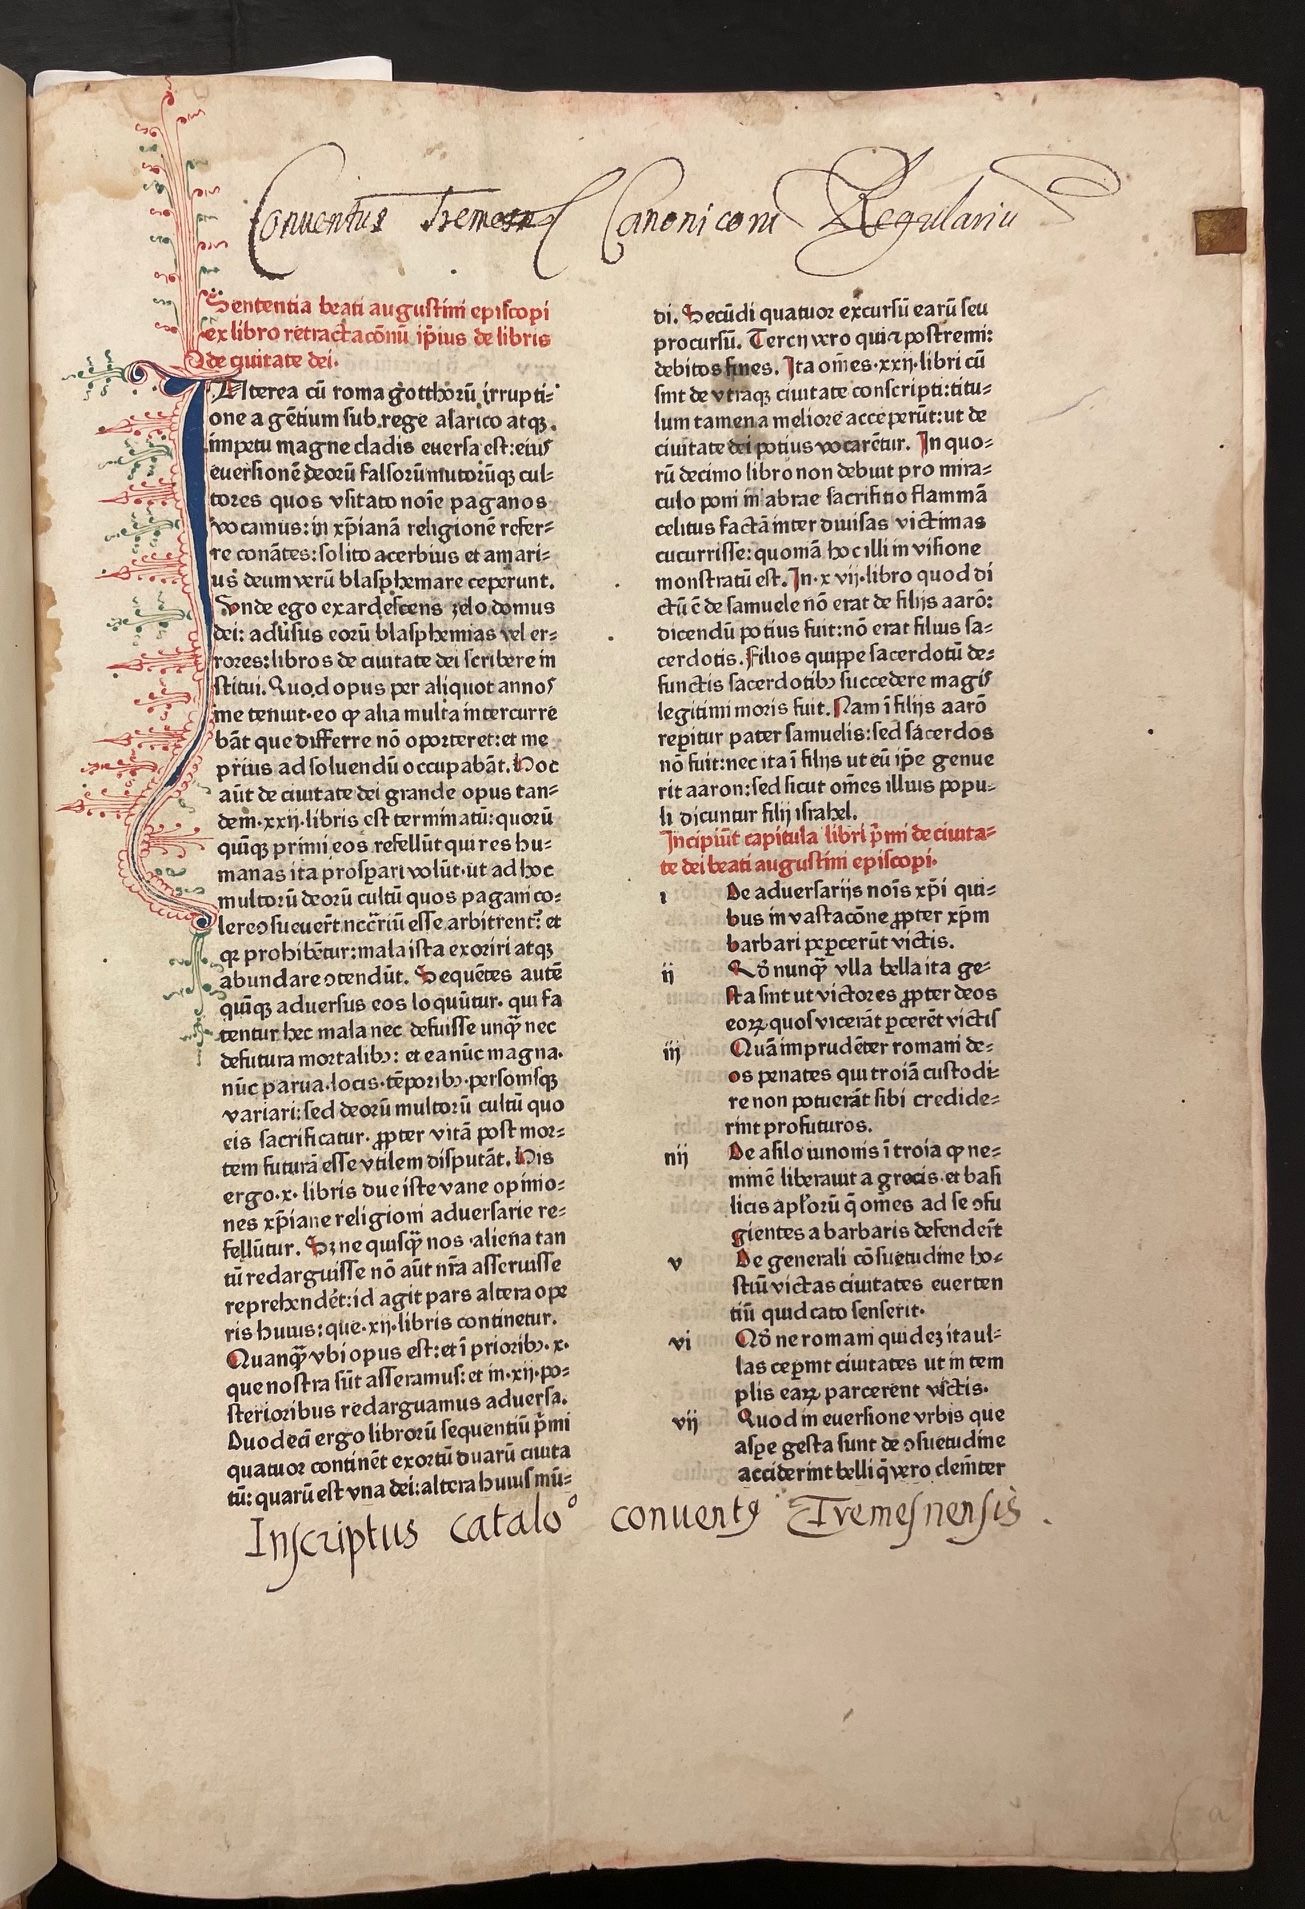 Conuentus Tremesn Canonicorū Regulariū
Sententia beati augustini episcopi
ex libro retractacōnū ip̄ius de libris
de ciuitate dei.
Interea cū roma gotthorū irrupti⸗
one agētium sub rege alarico atqꝫ
impetu magne cladis euersa est: eiuſ
euersionē deorū falsorū mutorūqꝫ cul⸗
tores quos vsitato noīe paganos
vocamus: in xp̄ianā religionē refer⸗
re conātes: solito acerbius et amari⸗
us deum verū blasphemare ceperunt.
Unde ego exardescens zelo domus
dei: adūsus eorū blasphemias vel er⸗
rores: libros de ciuitate dei scribere in
stitui. Quod opus per aliquot annoſ
me tenuit. eo ꝙ alia multa intercurre
bāt que differre nō oporteret: et me
prius ad soluendū occupabāt. Hoc
aūt de ciuitate dei grande opus tan⸗
dem .xxij. libris est terminatū: quorū
quīqꝫ primi eos refellūt qui res hu⸗
manas ita prosꝑari volūt. ut ad hoc
multorū deorū cultū quos pagani co⸗
lere ↄsueuer̄t nccr̄iū esse arbitrent᷑: et
qꝛ prohibētur: mala ista exoriri atqꝫ
abundare ↄtendūt. Sequētes autē
quīqꝫ aduersus eos loquūtur. qui fa
tentur hec mala nec defuisse unqꝫ̄ nec
defutura mortalibꝫ: et ea nūc magna.
nūc parua. locis. tēporibꝫ. personisqꝫ
variari: sed deorū multorū cultū quo
eis sacrificatur. ꝓpter vitā post mor⸗
tem futurā esse vtilem disputāt. His
ergo .x. libris due iste vane opinio⸗
nes xp̄iane religioni aduersarie re⸗
fellūtur. Sꝫ ne quisqꝫ̄ nos aliena tan
tū redarguisse nō aūt nr̄a asseruisse
reprehendēt: id agit pars altera ope
ris huius: que .xij. libris continetur.
Quanqꝫ̄ vbi opus est: et ī prioribꝫ .x.
que nostra sūt asseramus: et in .xij. po⸗
sterioribus redarguamus aduersa.
Duodecī ergo librorū sequentiū p̄mi
quatuor continēt exortū duarū ciuita
tū: quarū est vna dei: altera huius mū⸗
di. Secūdi quatuor excursū earū seu
procursū. Tercij vero qui ⁊ postremi:
debitos fines. Ita om̄es .xxij. libri cū
sint de vtraqꝫ ciuitate conscripti: titu⸗
lum tamen a meliore acceperūt: ut de
ciuitate dei potius vocarētur. In quo⸗
rū decimo libro non debuit pro mira⸗
culo poni in abrae sacrifitio flammā
celitus factā inter diuisas victimas
cucurrisse: quoniā hoc illi in visione
monstratū est. In .xvij. libro quod di
ctū ē de samuele nō erat de filijs aarō:
dicendū potius fuit: nō erat filius sa⸗
cerdotis. Filios quippe sacerdotū de⸗
functis sacerdotibꝫ succedere magiſ
legitimi moris fuit. Nam ī filijs aarō
reꝑitur pater samuelis: sed sacerdos
nō fuit: nec ita ī filijs ut eū ip̄e genue
rit aaron: sed sicut om̄es illius popu⸗
li dicuntur filij israhel.
Incipiūt capitula libri p̄mi de ciuita⸗
te dei beati augustini episcopi.
i De aduersarijs noīs xp̄i qui⸗
bus in vastacōne ꝓpter xp̄m
barbari peꝑcerūt victis.
ij Qō nunqꝫ̄ vlla bella ita ge⸗
sta sint ut victores ꝓpter deos
eoꝝ quoſ vicerāt ꝑcerēt victiſ
iij Quā imprudēter romani de⸗
os penates qui troiā custodi⸗
re non potuerāt sibi credide⸗
rint profuturos.
iiij De asilo iunonis ī troia ꝙ ne⸗
minē liberauit a grecis. et basi
licis apl'orū q̄ om̄es ad se ↄfu
gientes a barbaris defender̄t
v De generali cōsuetudine ho⸗
stiū victas ciuitates euerten
tiū quid cato senserit.
vi Qō ne romani quideꝫ ita ul⸗
las ceꝑint ciuitates ut in tem
plis eaꝝ parcerent victis.
vii Quod in euersione vrbis que
aspe gesta sunt de ↄsuetudine
acciderint belli q̄ vero clem̄ter
Inscriptus catalo° conuentꝰ Tremesnensis.
a